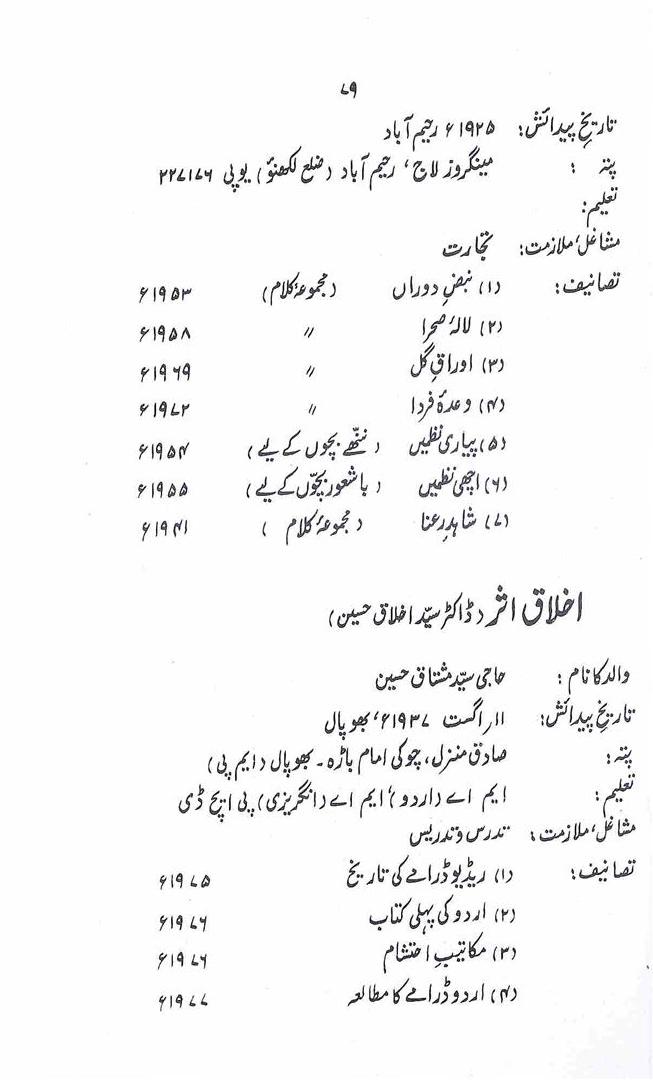 ۷۹
تاریخِ پیدائش: ۱۹۲۵ء رحیم آباد
پتہ : مینگروز لاج، رحیم آباد (ضلع لکھنؤ) یوپی ۲۲۷۱۷۶
تعلیم:
مشاغل، ملازمت: تجارت
تصانیف: (۱) نبضِ دوراں (مجموعۂ کلام) ۱۹۵۳ء
(۲) لالۂ صحرا 〃 ۱۹۵۸ء
(۳) اوراقِ گل 〃 ۱۹۶۹ء
(۴) وعدۂ فردا 〃 ۱۹۷۲ء
(۵) پیاری نظمیں (ننھّے بچوں کے لیے) ۱۹۵۴ء
(۶) اچھی نظمیں (باشعور بچّوں کے لیے) ۱۹۵۵ء
(۷) شاہدِ رعنا (مجموعۂ کلام) ۱۹۴۱ء
اخلاق اثر (ڈاکٹر سیّد اخلاق حسین)
والد کا نام : حاجی سیّد مشتاق حسین
تاریخِ پیدائش: ۱۱ر اگست ۱۹۳۷ء، بھوپال
پتہ: صادق منزل، چوکی امام باڑہ۔ بھوپال (ایم پی)
تعلیم: ایم اے (اردو)، ایم اے (انگریزی) پی ایچ ڈی
مشاغل، ملازمت: تدرس و تدریس
تصانیف: (۱) ریڈیو ڈرامے کی تاریخ ۱۹۷۵ء
(۲) اردو کی پہلی کتاب ۱۹۷۶ء
(۳) مکاتیبِ احتشام ۱۹۷۶ء
(۴) اردو ڈرامے کا مطالعہ ۱۹۷۷ء